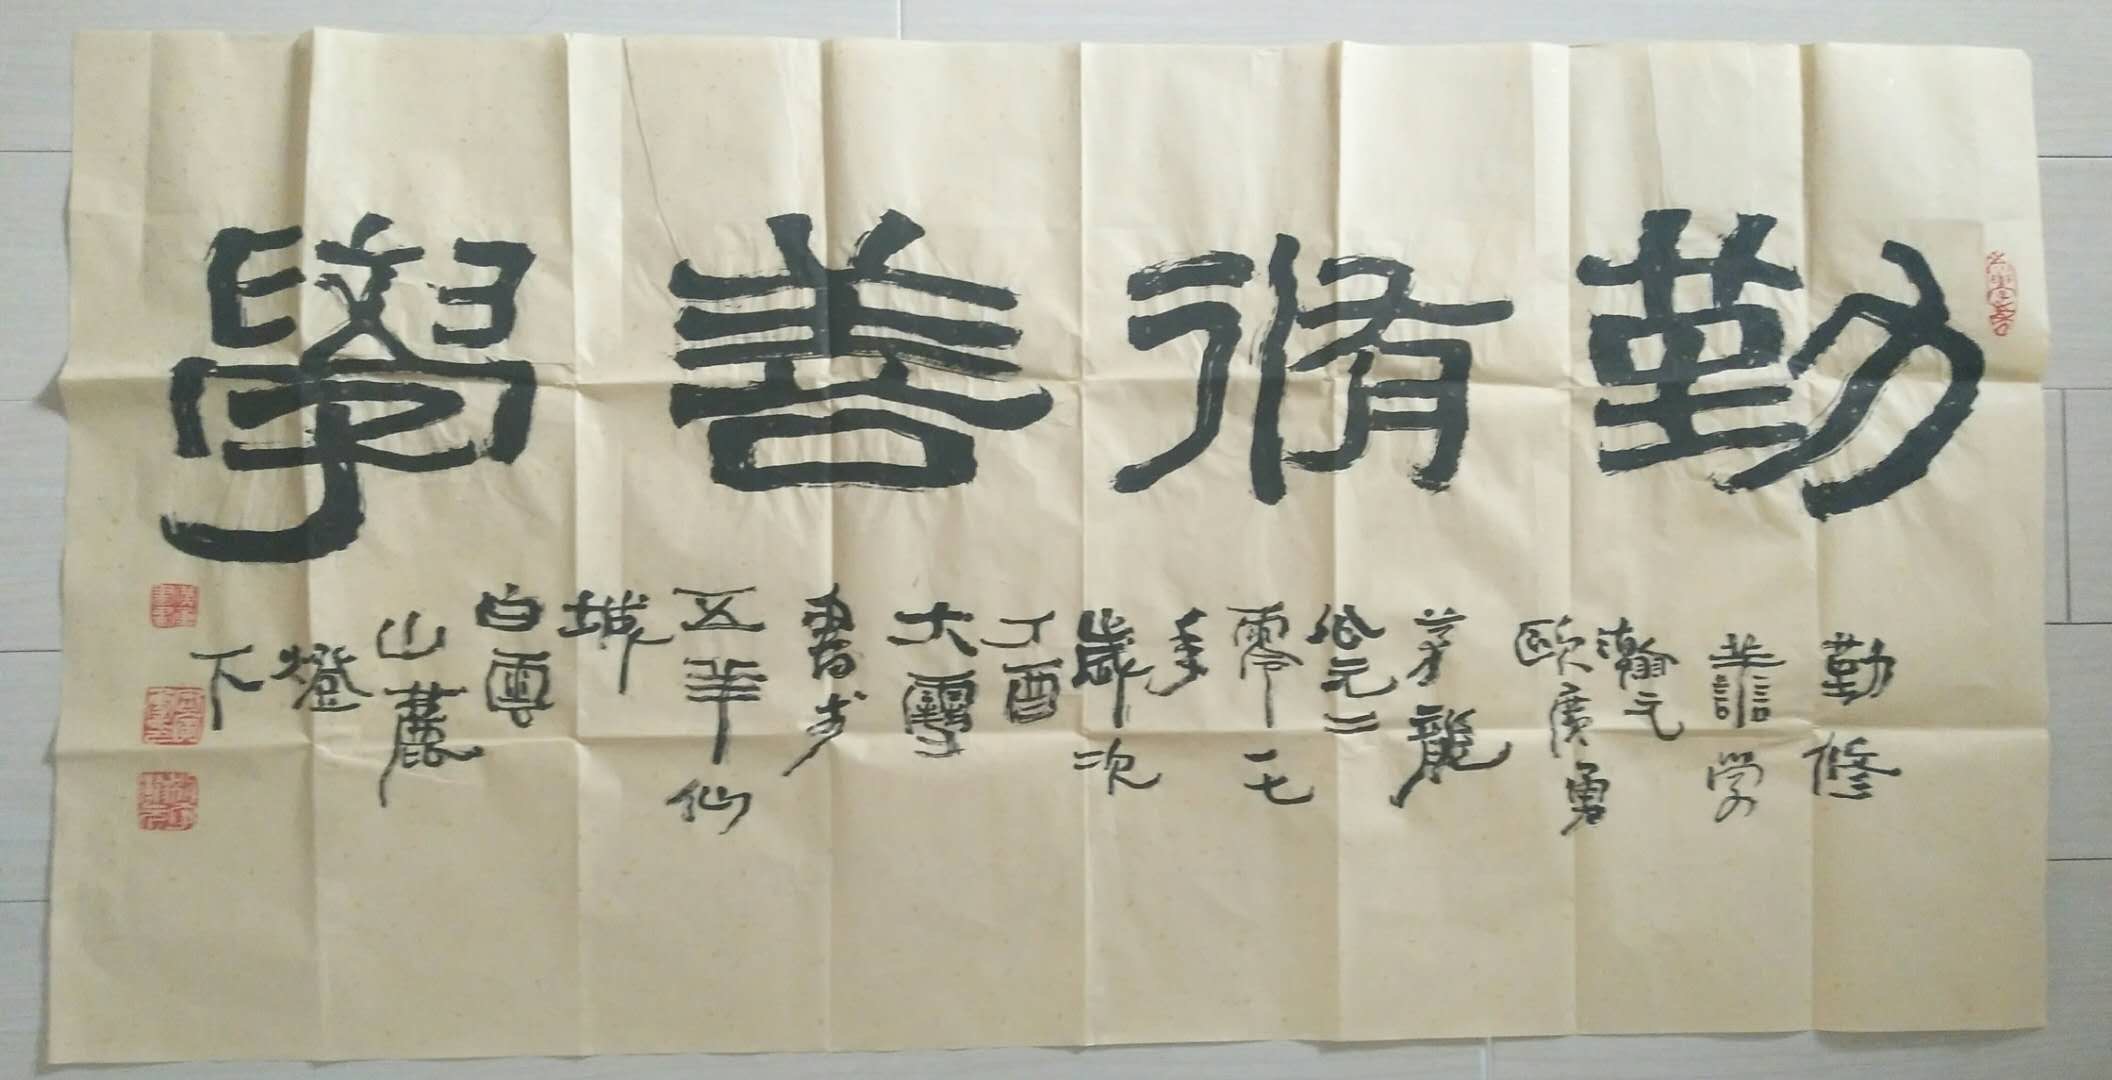 勤脩善學
勤修
善学
瀚元
歐廣勇
茅龍
公元二
零一七
年
歲次
丁酉
大雪
書於
五羊仙
城
白雲
山麓
燈
下